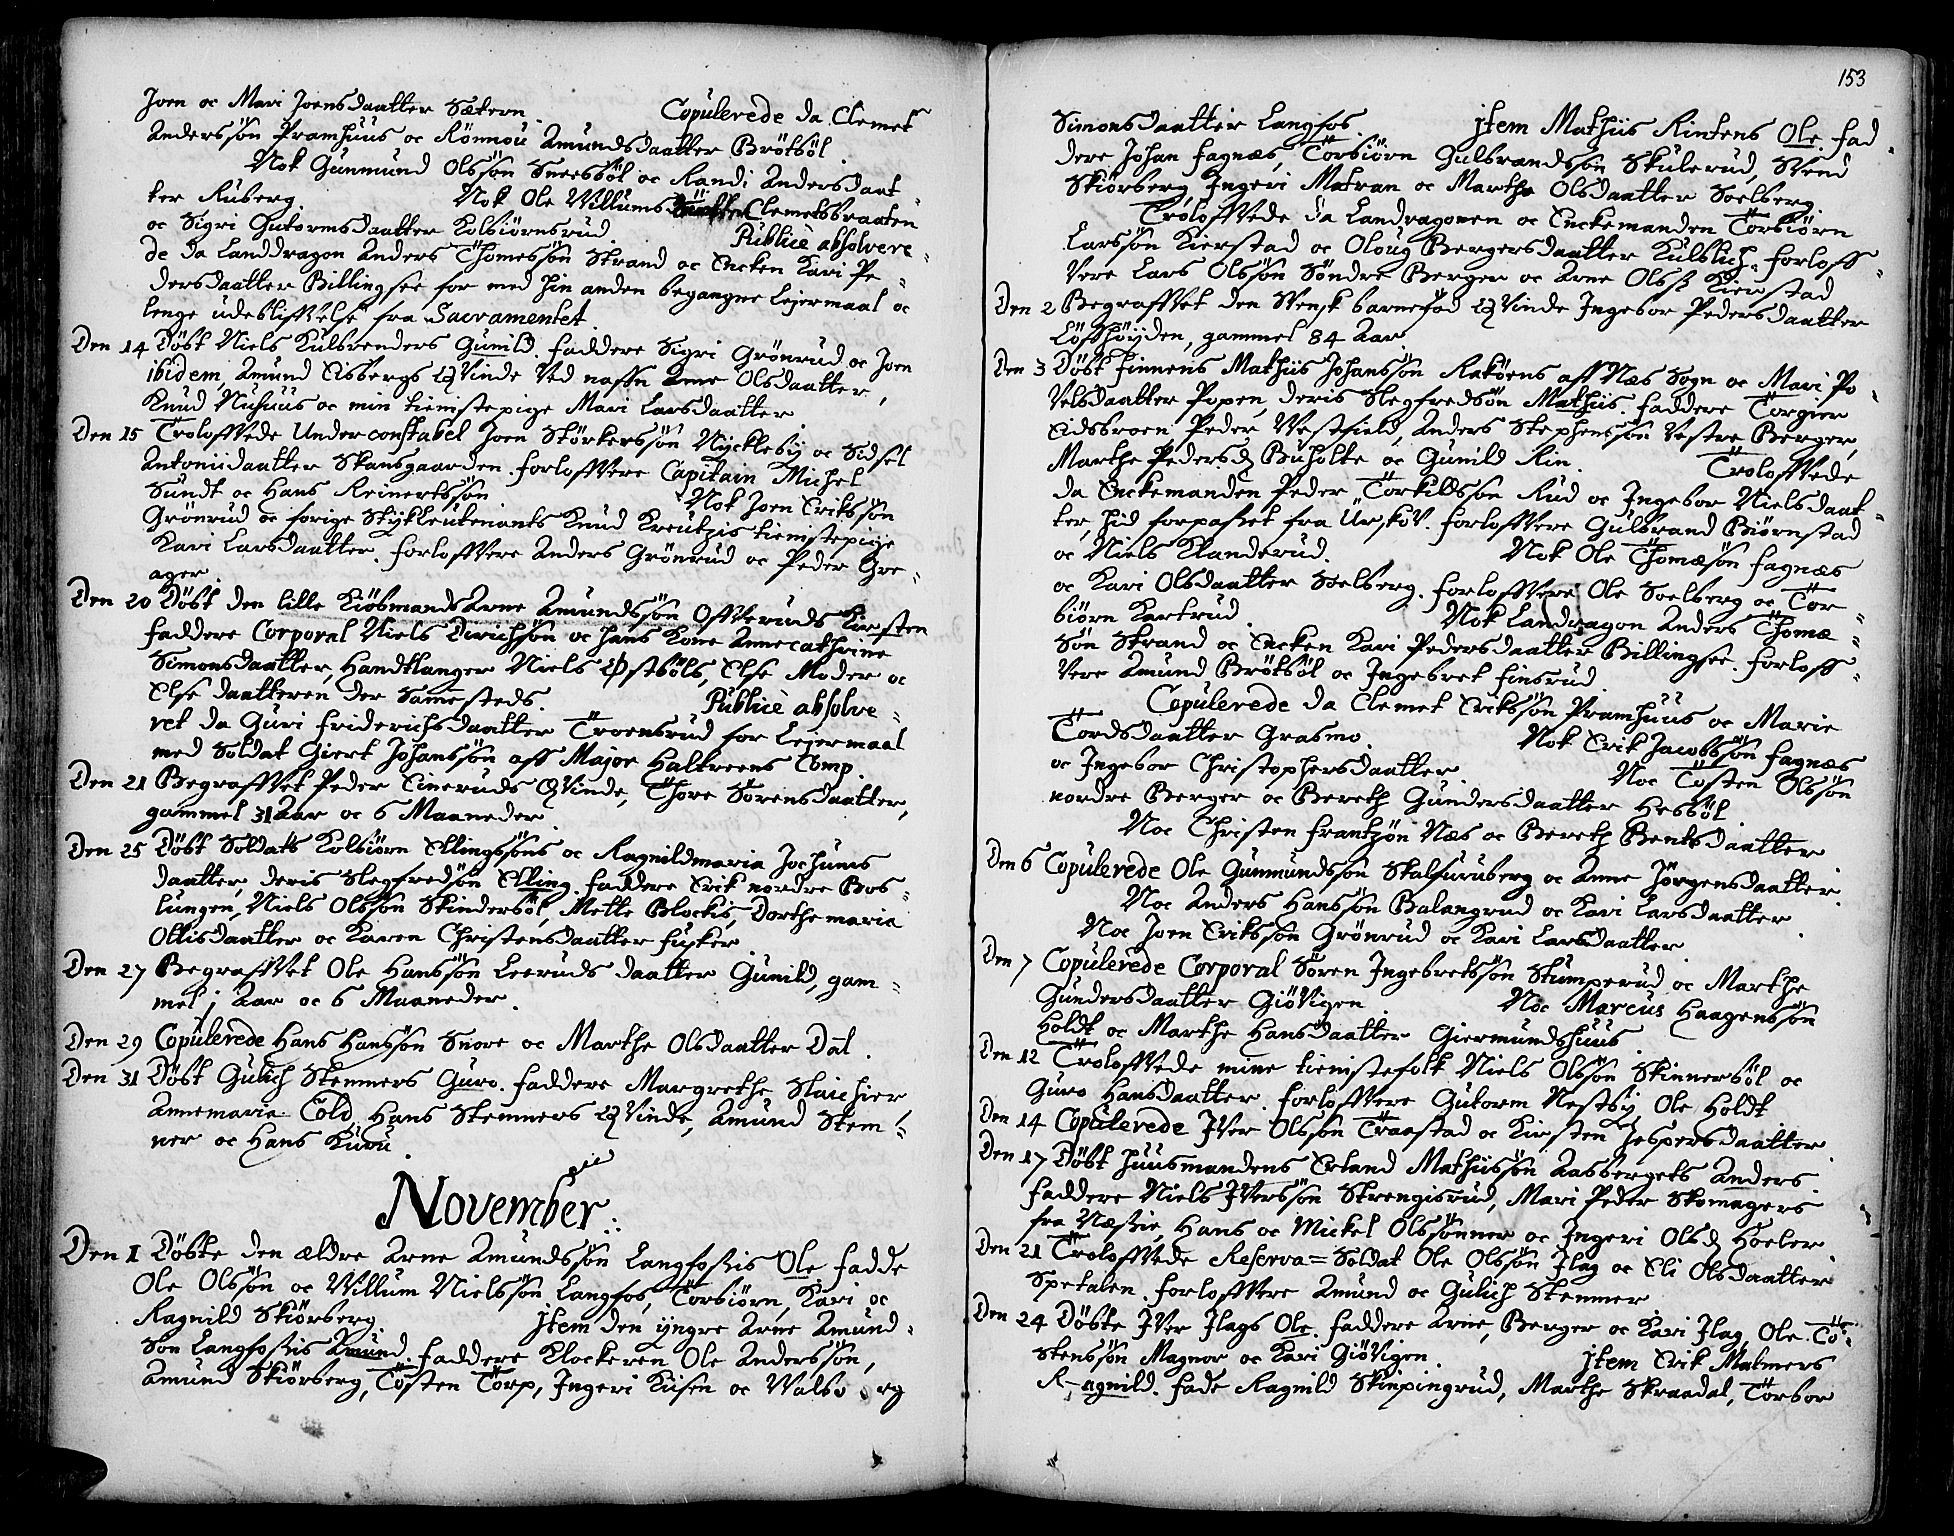 Joen oc Mari Joensdaatter Sætern. Copulerede da Clemet
Anderssøn Pramhuus oc Rønnou Amundsdaatter Brøtsøl.
Nok Gunmund Olssøn Sneesbøl oc Randi Andersdaat-
ter Ruberg. Nok Ole Willums Clemetsbraaten
oc Sigri Gutormsdaatter Kolbiørnsrud. Publicè absolvere-
de da Landdragon Anders Thomessøn Strand oc Encken Kari Pe-
dersdaatter Billingsee for med hin anden begangne Lejermaal oc
lenge udebliffvelse fra Sacramentet.
Den 14 Døbt Niels Kulsrenders Gunild. faddere Sigri Grønrud oc Joen
ibidem, Amund Eisbergs Qvinde ved naffn Anne Olsdaatter,
Knud Nuhuus oc min tienistepige Mari Larsdaatter.
Den 15 Troloffvede Underconstabel Joen Størkerssøn Nycklebÿ oc Sidsel
Antoniidaatter Skansgaarden. forloffvere Capitain Michel
Sundt oc Hans Reinertssøn. Nok Joen Erikssøn
Grønrud oc forige Stykleutenants Knud Kreutzis tienistepige
Kari Larsdaatter. forloffvere Anders Grønrud oc Peder Gre-
ager.
Den 20 Døbt den lille Kiøbmands Arne Amundssøn Offveruds Kirsten
faddere Corporal Niels Dirichsøn oc hans Kone Annecathrine
Simonsdaatter, Handtlanger Niels Østbøls, Else Moder oc
Else daatteren der Sammesteds. Publicè absolve-
ret da Guri Friderichsdaatter Troensrud for Lejermaal
med Soldat Giert Johanssøn aff Major Haltreens Comp.
Den 21 Begraffvet Peder Eineruds Qvinde, Thore Sørensdaatter,
gammel 31 Aar oc 6 Maaneder.
Den 25 Døbt Soldats Kolbiørn Ellingssøns oc Ragnildmaria Jochums
daatter, deris Slegfredsøn Elling. faddere Erik nordre Bos-
lungen, Niels Olssøn Skindersøl, Mette Blockis, Dorthemaria
Ottisdaatter oc Karen Christensdaatter Fusker.
Den 27 Begraffvet Ole Hanssøn Leeruds daatter Gunild, gam-
mel j Aar oc 6 Maaneder.
Den 29 Copulerede Hans Hanssøn Snore oc Marthe Olsdaatter Dal.
Den 31 Døbt Gulich Stemmers Guro. faddere Margrethe Slaichier
Annemaria Cold, Hans Stemmers Qvinde, Amund Stem-
ner oc Hans Kuru.
November.
Den 1 Døbte den ældre Arne Amundssøn Langfossis Ole fadde
Ole Olssøn oc Willum Nielssøn Langfos, Torbiørn, Kari oc
Ragnild Skiørberg. Jtem den yngre Arne Amund-
søn Langfossis Amund. faddere Klockeren Ole Anderssøn,
Amund Skiørberg, Tosten Torp, Ingeri Kiisen oc Walborg
153
Simonsdaatter Langfos. Jtem Mathiis Rintens Ole. fad-
dere Johan Fagnæs, Torbiørn Gulbrandssøn Skulerud, Svend
Skiørberg Ingeri Matran oc Marthe Olsdaatter Soelberg.
Troloffvede da Landragonen oc Enckemanden Torbiørn
Larssøn Kierstad oc Oloug Bergersdaatter Kulslich. forloff-
vere Lars Olssøn Søndre Berger oc Arne Olss: Kierstad
Den 2 Begraffvet den Svensk barnefød Qvinde Ingebor Pedersdaatter
Løfthøyden, gammel 84 Aar.
Den 3 Døbt finnens Mathiis Johanssøn Rakøens aff Næs Sogn oc Mari Po-
velsdaatter Popen, deris Slegfredsøn Mathiis. faddere Torgier
Eidsbroen Peder Westfield, Anders Stephenssøn Vestre Berger,
Marthe Pedersd: Buholte oc Gunild Rin. Troloffvede
da Enckemanden Peder Torkildssøn Rud oc Ingebor Nielsdaat-
ter, hid forpasset fra Urskov. forloffvere Gulbrand Biørnstad
oc Niels Klanderud. Nok Ole Thomæsøn Fagnæs
oc Kari Olsdaatter Soelberg. forloffvere Ole Soelberg oc Tor-
biørn Kartrud. Nok Landragon Anders Thomæ-
søn Strand oc Encken Kari Pedersdaatter Billingsee. forloff-
vere Amund Brøtsøl oc Ingebret Finsrud.
Copulerede da Clemet Erikssøn Pramhuus oc Marie
Tordsdaatter Grasmo. Nok Erik Jacobssøn Fagnæs
oc Ingebor Christophersdaatter. Noc Tosten Olssøn
nordre Berger oc Bereth Gundersdaatter Hessøl.
Noc Christen Frantzøn Næs oc Bereth Bentsdaatter.
Den 6 Copulerede Ole Gunmundssøn Skalfuruberg oc Anne Jørgensdaatter.
Noc Anders Hanssøn Balangrud oc Kari Larsdaatter.
Noc Joen Erikssøn Grønrud oc Kari Larsdaatter.
Den 7 Copulerede Corporal Søren Ingebretssøn Stumperud oc Marthe
Gundersdaatter Giøvigen. Noc Marcus Haagenssøn
Holdt oc Marthe Hansdaatter Giermundshuus.
Den 12 Troloffvede mine tienistefolk Niels Olssøn Skinnersøl oc
Guro Hansdaatter. forloffvere Gutorm Nestbÿ, Ole Holdt
Den 14 Copulerede Iver Olssøn Traastad oc Kirsten Jespersdaatter.
Den 17 Døbt Huusmandens Erland Mathiissøn Aasbergets Anders.
faddere Niels Iverssøn Strengisrud, Mari Peder Skomagers
fra Næssie, Hans oc Mickel Olssønner oc Ingeri Olsd: Hoeler.
Den 21 Troloffvede Reserva= Soldat Ole Olssøn Ilag oc Eli Olsdaatter
Spetalen. forloffvere Amund oc Gulich Stemmer
Den 24 Døbte Iver Ilags Ole. faddere Arne, Berger oc Kari Ilag, Ole To-
stenssøn Magnor oc Kari Giøvigen. Jtem Erik Matmers
Ragnild. fade Ragnild Skinpingrud, Marthe Skraadal, Torbor